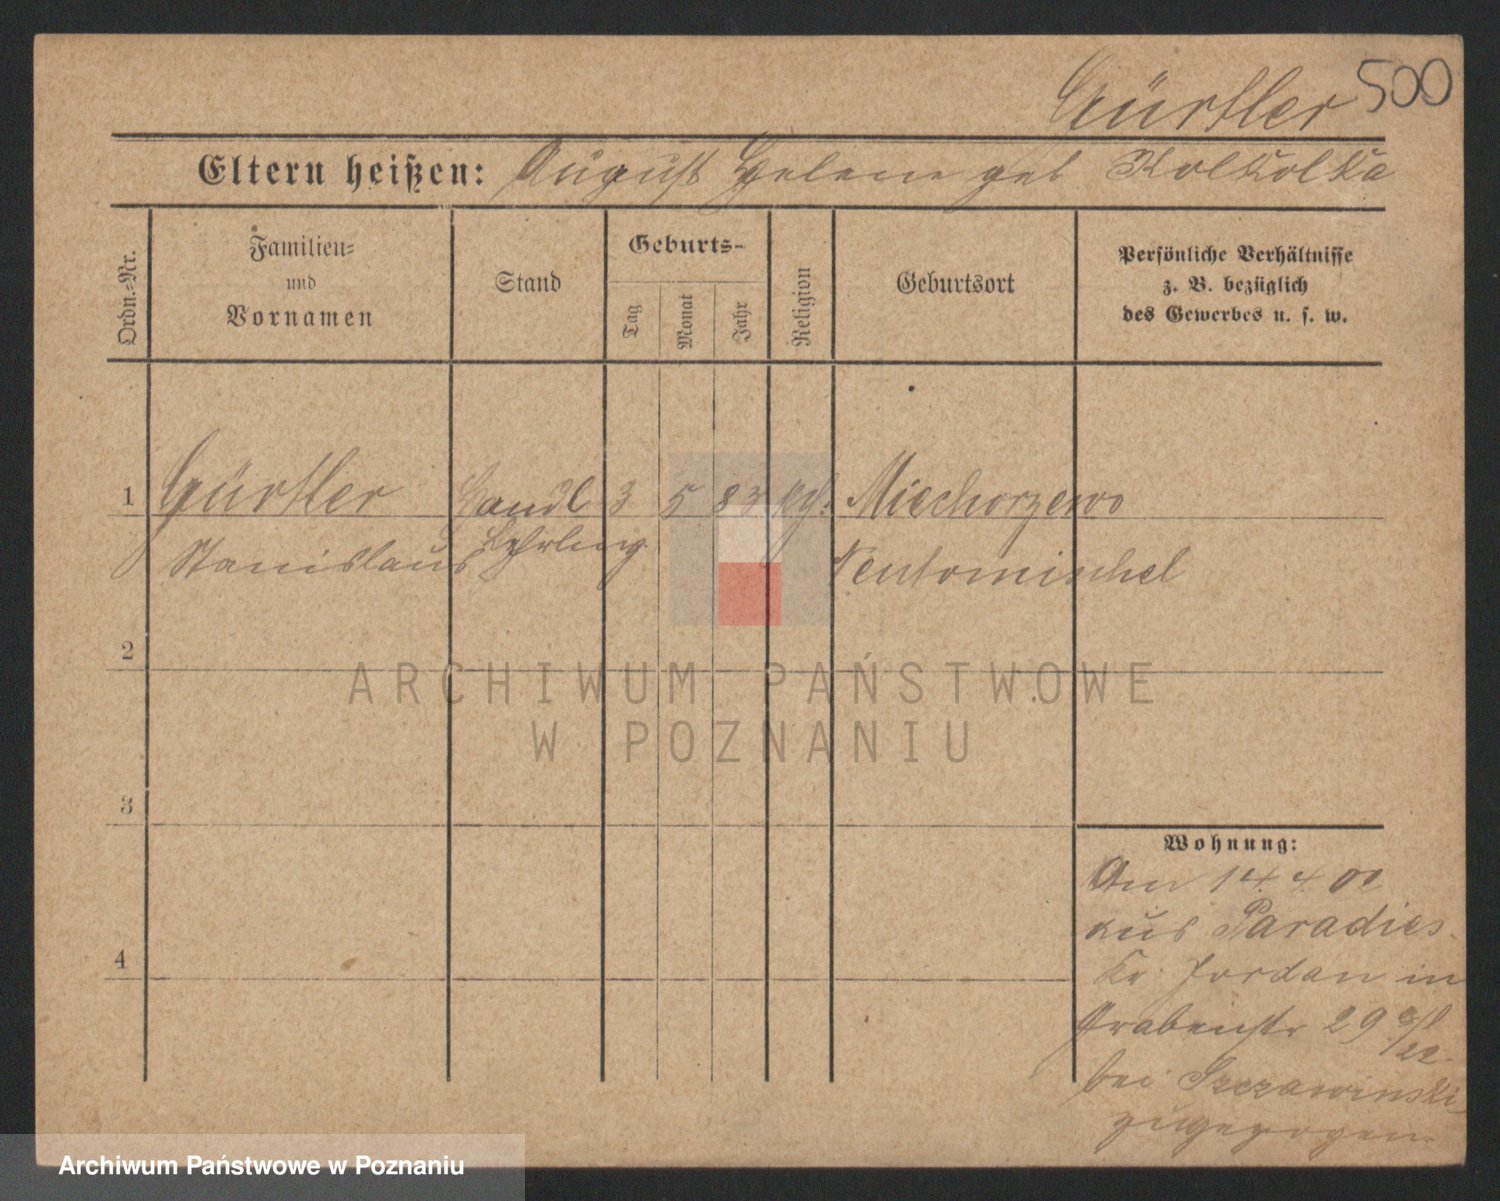 Gürtler 500
Eltern heißen: August Helene geb Kolkolka
Ordn.-Nr.
Familien-
und
Vornamen
Stand
Geburts-
Tag
Monat
Jahr
Religion
Geburtsort
Persönliche Verhältnisse
z. B. bezüglich
des Gewerbes u. s. w.
1 Gürtler Handl 3 5 83 kth. Miechorzewo
Stanislaus Lehrling Neutomischel
2
ARCHIWUM PAŃSTWOWE
W POZNANIU
3
Wohnung:
Am 14. 4. 00
aus Paradies
4
Kr. Jordan in
Grabenstr 29
bei Szczawinski
zugezogen.
Archiwum Państwowe w Poznaniu